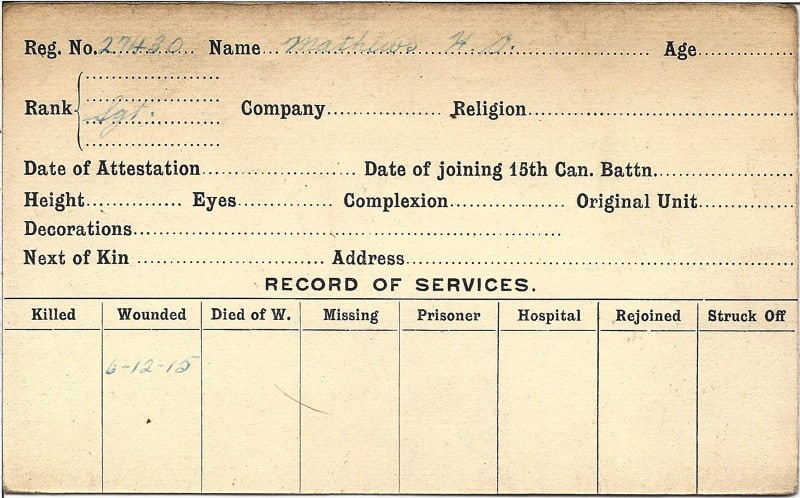 Reg. No. 27430 Name Mathews H. O. Age
Rank Sgt. Company Religion
Date of Attestation Date of joining 15th Can. Battn.
Height Eyes Complexion Original Unit
Decorations
Next of Kin Address
RECORD OF SERVICES.
Killed Wounded Died of W. Missing Prisoner Hospital Rejoined Struck Off
6-12-15